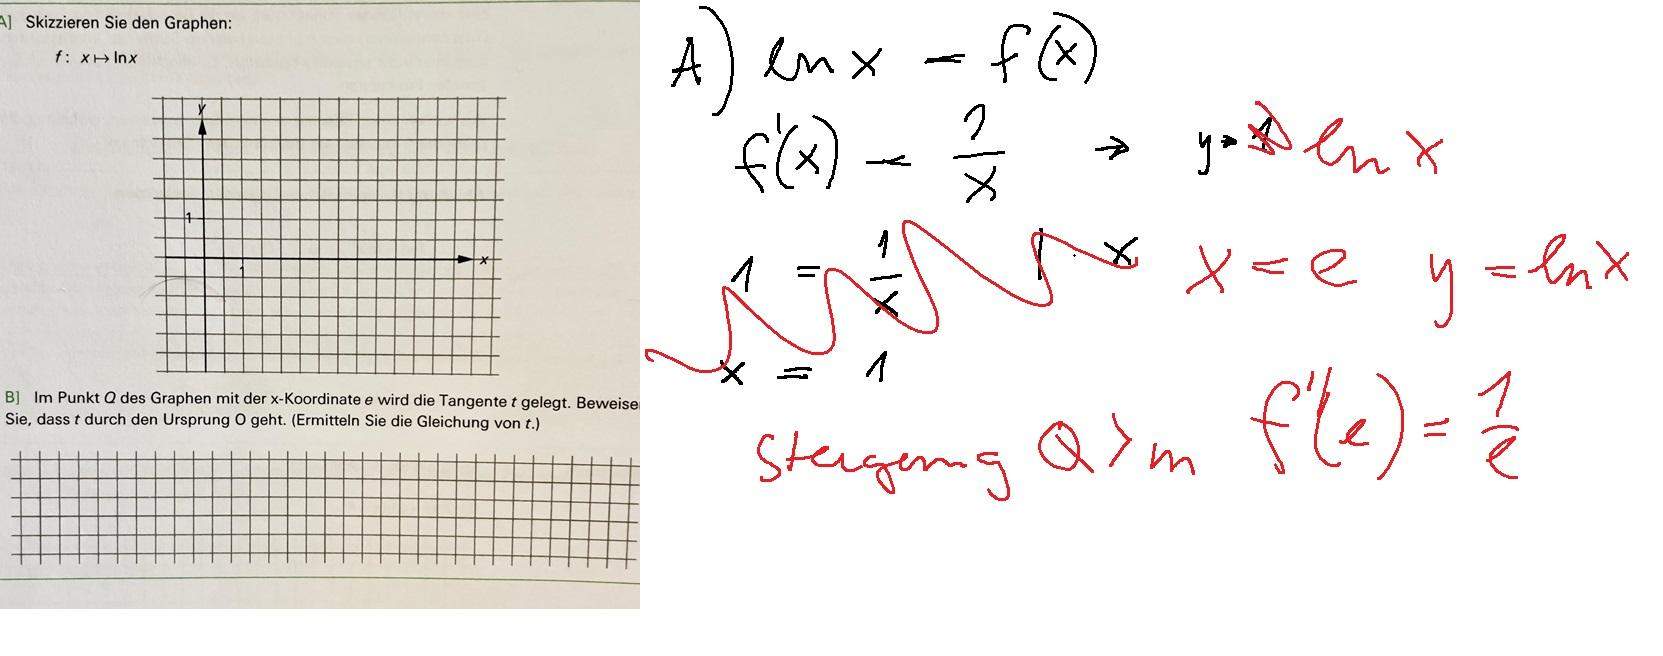 A] Skizzieren Sie den Graphen:
f: x ↦ ln x
y
1
1
x
B] Im Punkt Q des Graphen mit der x-Koordinate e wird die Tangente t gelegt. Beweise
Sie, dass t durch den Ursprung O geht. (Ermitteln Sie die Gleichung von t.)
A) ln x = f(x)
f'(x) = 1/x → y = ln x
1 = 1/x | x
x = e y = ln x
x = 1
Steigerung Q > m f'(e) = 1/e